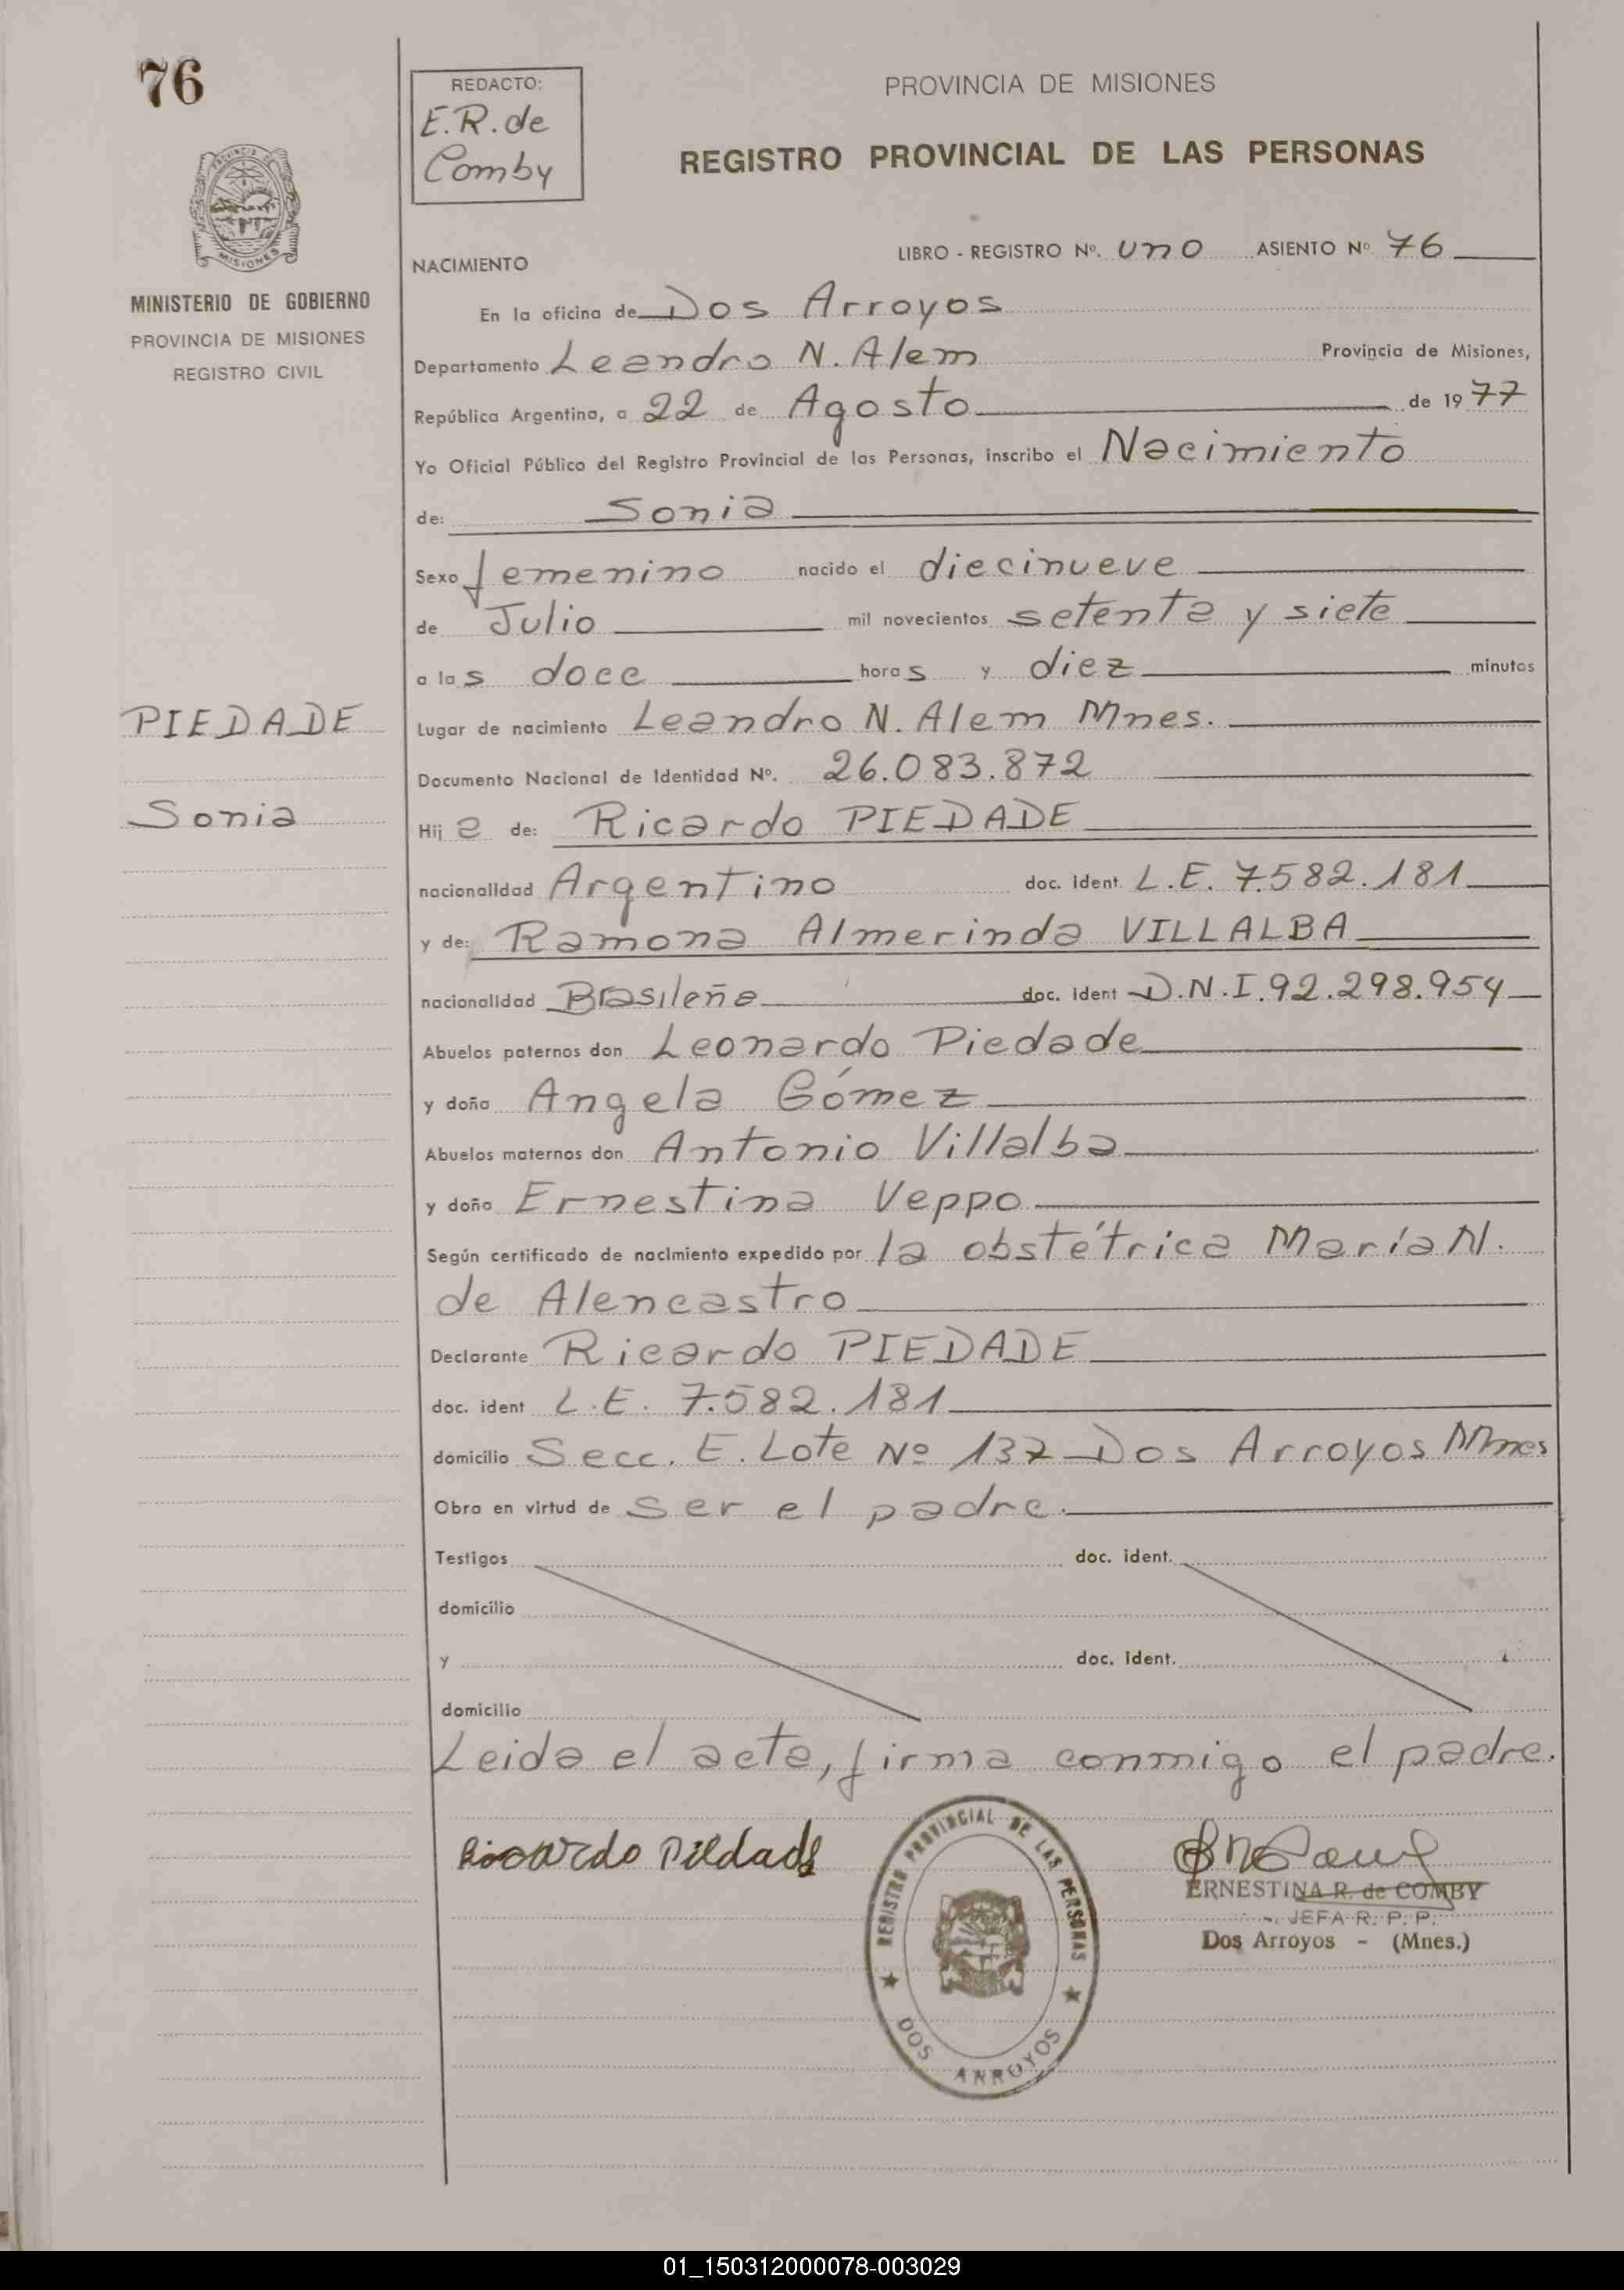 76
REDACTO:
E.R. de
Comby
PROVINCIA DE MISIONES
REGISTRO PROVINCIAL DE LAS PERSONAS
PROVINCIA DE
MISIONES
MINISTERIO DE GOBIERNO
PROVINCIA DE MISIONES
REGISTRO CIVIL
NACIMIENTO
LIBRO - REGISTRO Nº. uno ASIENTO Nº 76
En la oficina de Dos Arroyos
Departamento Leandro N. Alem Provincia de Misiones,
República Argentina, a 22 de Agosto de 1977
Yo Oficial Público del Registro Provincial de las Personas, inscribo el Nacimiento
de: Sonia
Sexo femenino nacido el diecinueve
de Julio mil novecientos setenta y siete
a las doce horas y diez minutos
PIEDADE
Sonia
Lugar de nacimiento Leandro N. Alem Mnes.
Documento Nacional de Identidad Nº. 26.083.872
Hija de: Ricardo PIEDADE
nacionalidad Argentino doc. ident. L.E. 7.582.181
y de: Ramona Almerinda VILLALBA
nacionalidad Brasileña doc. ident D.N.I. 92.298.954
Abuelos paternos don Leonardo Piedade
y doña Angela Gómez
Abuelos maternos don Antonio Villalba
y doña Ernestina Veppo
Según certificado de nacimiento expedido por la obstétrica María N.
de Alencastro
Declarante Ricardo PIEDADE
doc. ident L.E. 7.582.181
domicilio Secc. E. Lote Nº 137 - Dos Arroyos Mnes
Obra en virtud de ser el padre.
Testigos doc. ident.
domicilio
y doc. ident.
domicilio
Leida el acta, firma conmigo el padre.
Ricardo Piedade
REGISTRO PROVINCIAL DE LAS PERSONAS
DOS ARROYOS
ERNESTINA R. de COMBY
JEFA R. P. P.
Dos Arroyos - (Mnes.)
01_150312000078-003029